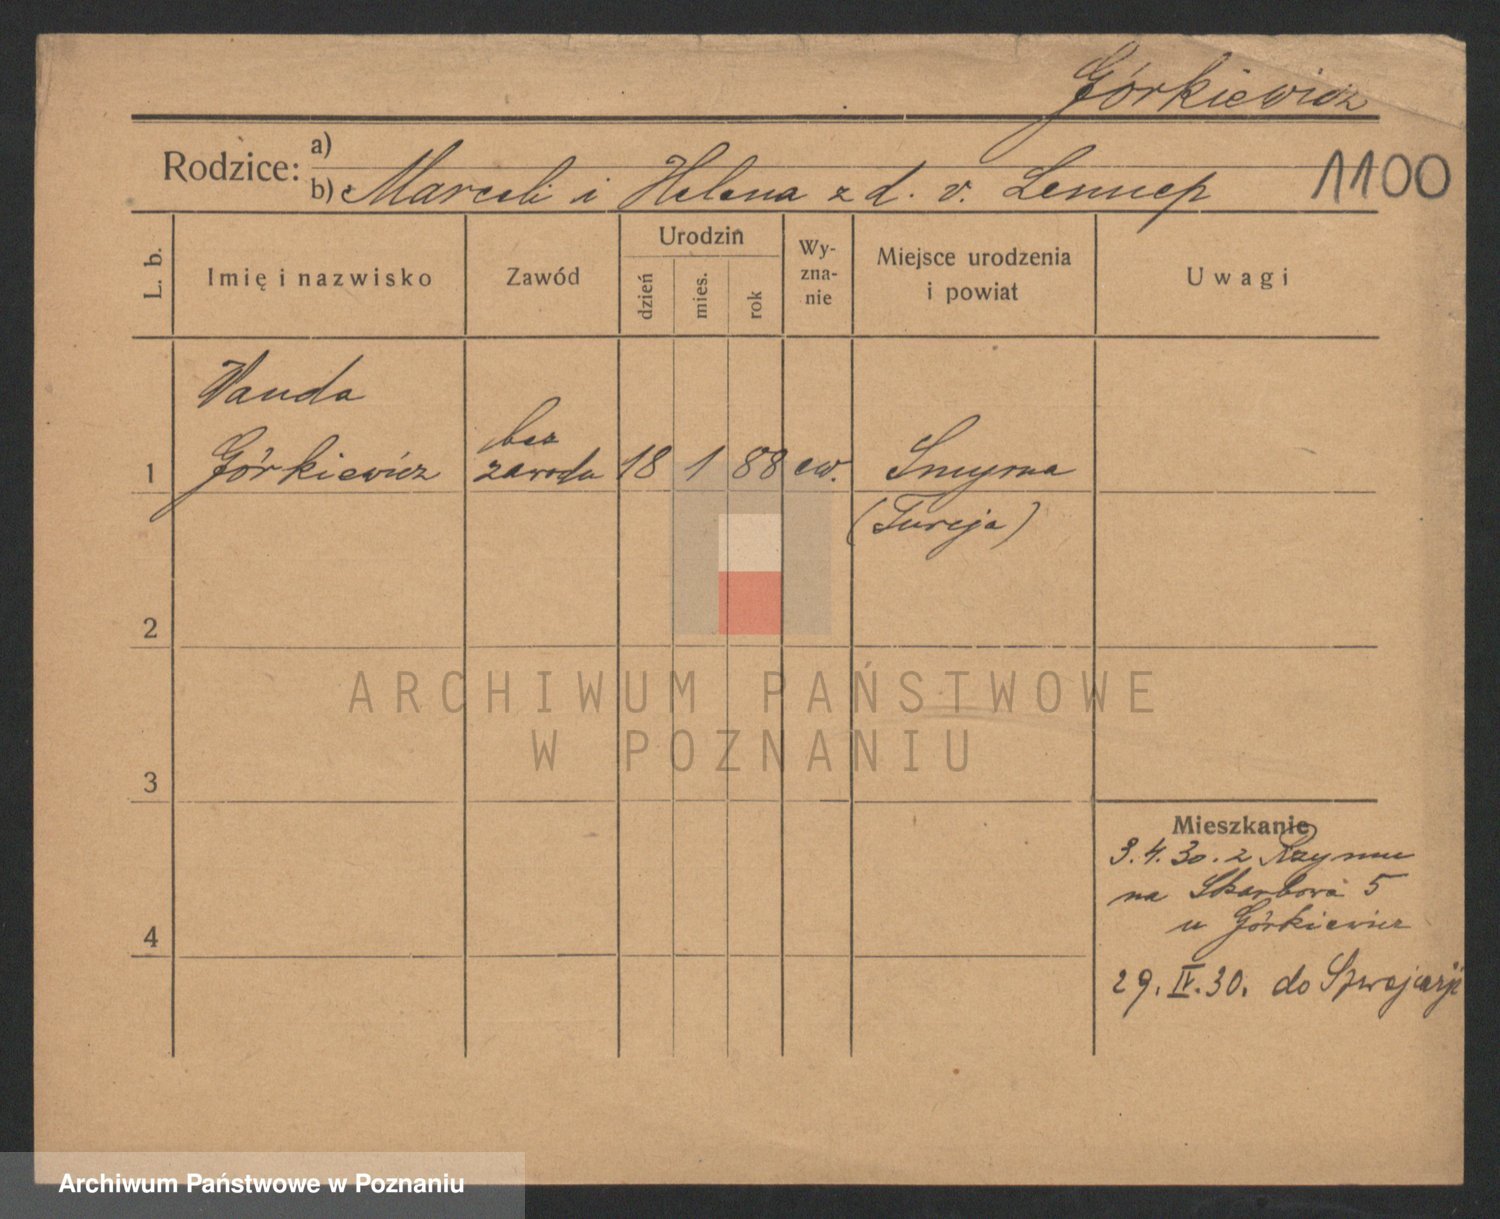 Górkiewicz
Rodzice: a)
b) Marceli i Helena z d. v. Lennep
1100
L. b.
Imię i nazwisko
Zawód
Urodzin
dzień
mies.
rok
Wy-
zna-
nie
Miejsce urodzenia
i powiat
Uwagi
Wanda
1 Górkiewicz
bez
zawodu
18 1 88 ew. Smyrna
(Turcja)
2
3
4
Mieszkanie
3.4.30. z Rzymu
na Skarbowa 5
u Górkiewicz
29.IV.30. do Szwajcarji
ARCHIWUM PAŃSTWOWE
W POZNANIU
Archiwum Państwowe w Poznaniu